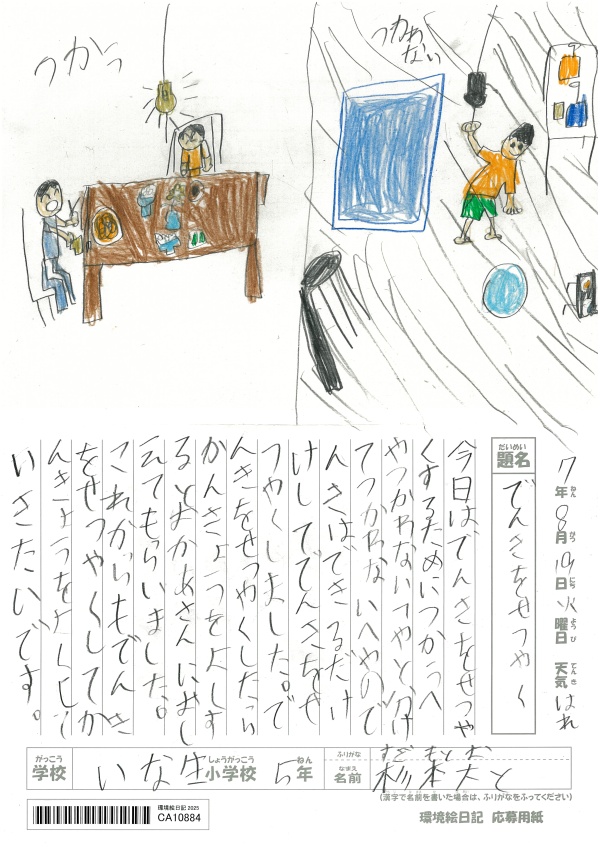 つかう
つかわない
7年8月19日火曜日 天気はれ
ねん がつ にち ようび てんき
だいめい
題名
でんきをせつやく
今日はでんきをせつや
くするためにつかうへ
やつかわないへやと分け
てつかわないへやので
んきはできるだけ
けしてでんきをせ
つやくしました。で
んきをせつやくしたら
かんきょうをよくす
るとおかあさんにおし
えてもらいました。
これからもでんき
をせつやくしてか
んきょうをよくして
いきたいです。
がっこう
学校
いな生小学校
しょうがっこう
5年
ねん
ふりがな
なまえ
名前
杉本大と
(漢字で名前を書いた場合は、ふりがなをふってください)
環境絵日記 2025
CA10884
環境絵日記 応募用紙